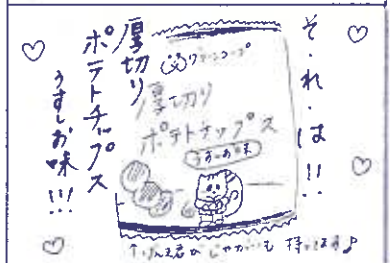 それは!!
グリーンコープ
厚切り
ポテトチップス
うすしお味
厚切り
ポテトチップス
うすしお味!!!
じゃがいも持ってます♪